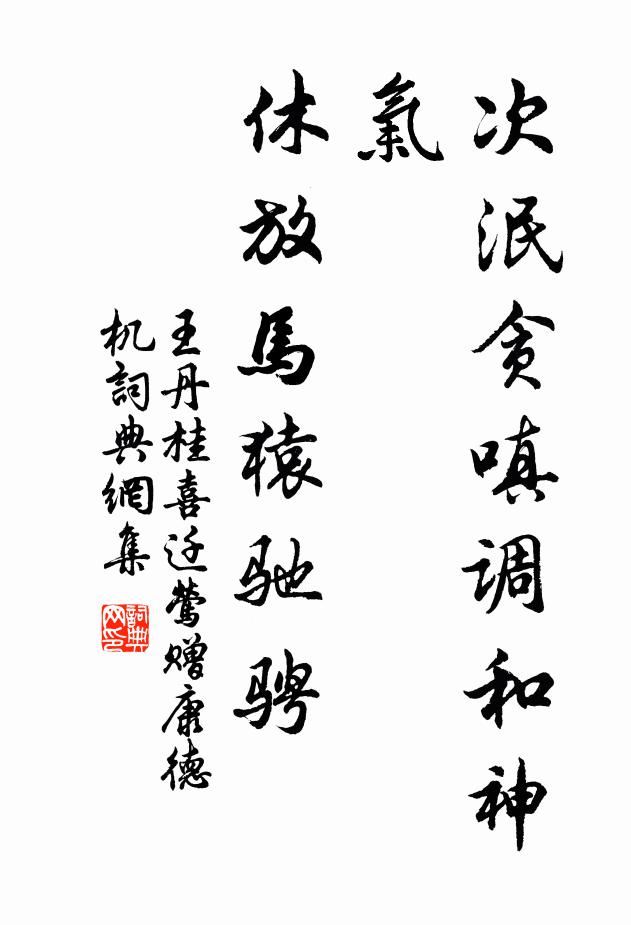 次泯贪嗔调和神
氣
休放馬猿驰骋
王丹桂喜迁莺赠康德
机詞典網集
詞典
网印